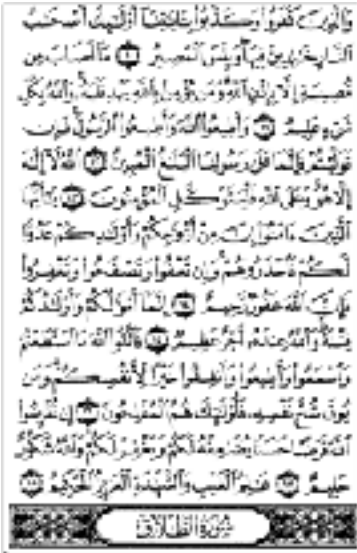 وَالَّذِينَ كَفَرُوا وَكَذَّبُوا بِآيَاتِنَا أُولَٰئِكَ أَصْحَابُ
النَّارِ خَالِدِينَ فِيهَا وَبِئْسَ الْمَصِيرُ ١٠ مَا أَصَابَ مِن
مُّصِيبَةٍ إِلَّا بِإِذْنِ اللَّهِ وَمَن يُؤْمِن بِاللَّهِ يَهْدِ قَلْبَهُ وَاللَّهُ بِكُلِّ
شَيْءٍ عَلِيمٌ ١١ وَأَطِيعُوا اللَّهَ وَأَطِيعُوا الرَّسُولَ فَإِن
تَوَلَّيْتُمْ فَإِنَّمَا عَلَىٰ رَسُولِنَا الْبَلَاغُ الْمُبِينُ ١٢ اللَّهُ لَا إِلَٰهَ
إِلَّا هُوَ وَعَلَى اللَّهِ فَلْيَتَوَكَّلِ الْمُؤْمِنُونَ ١٣ يَا أَيُّهَا
الَّذِينَ آمَنُوا إِنَّ مِنْ أَزْوَاجِكُمْ وَأَوْلَادِكُمْ عَدُوًّا
لَّكُمْ فَاحْذَرُوهُمْ وَإِن تَعْفُوا وَتَصْفَحُوا وَتَغْفِرُوا
فَإِنَّ اللَّهَ غَفُورٌ رَّحِيمٌ ١٤ إِنَّمَا أَمْوَالُكُمْ وَأَوْلَادُكُمْ
فِتْنَةٌ وَاللَّهُ عِندَهُ أَجْرٌ عَظِيمٌ ١٥ فَاتَّقُوا اللَّهَ مَا اسْتَطَعْتُمْ
وَاسْمَعُوا وَأَطِيعُوا وَأَنفِقُوا خَيْرًا لِّأَنفُسِكُمْ وَمَن
يُوقَ شُحَّ نَفْسِهِ فَأُولَٰئِكَ هُمُ الْمُفْلِحُونَ ١٦ إِن تُقْرِضُوا
اللَّهَ قَرْضًا حَسَنًا يُضَاعِفْهُ لَكُمْ وَيَغْفِرْ لَكُمْ وَاللَّهُ شَكُورٌ
حَلِيمٌ ١٧ عَالِمُ الْغَيْبِ وَالشَّهَادَةِ الْعَزِيزُ الْحَكِيمُ ١٨
سُورَةُ الطَّلَاقِ